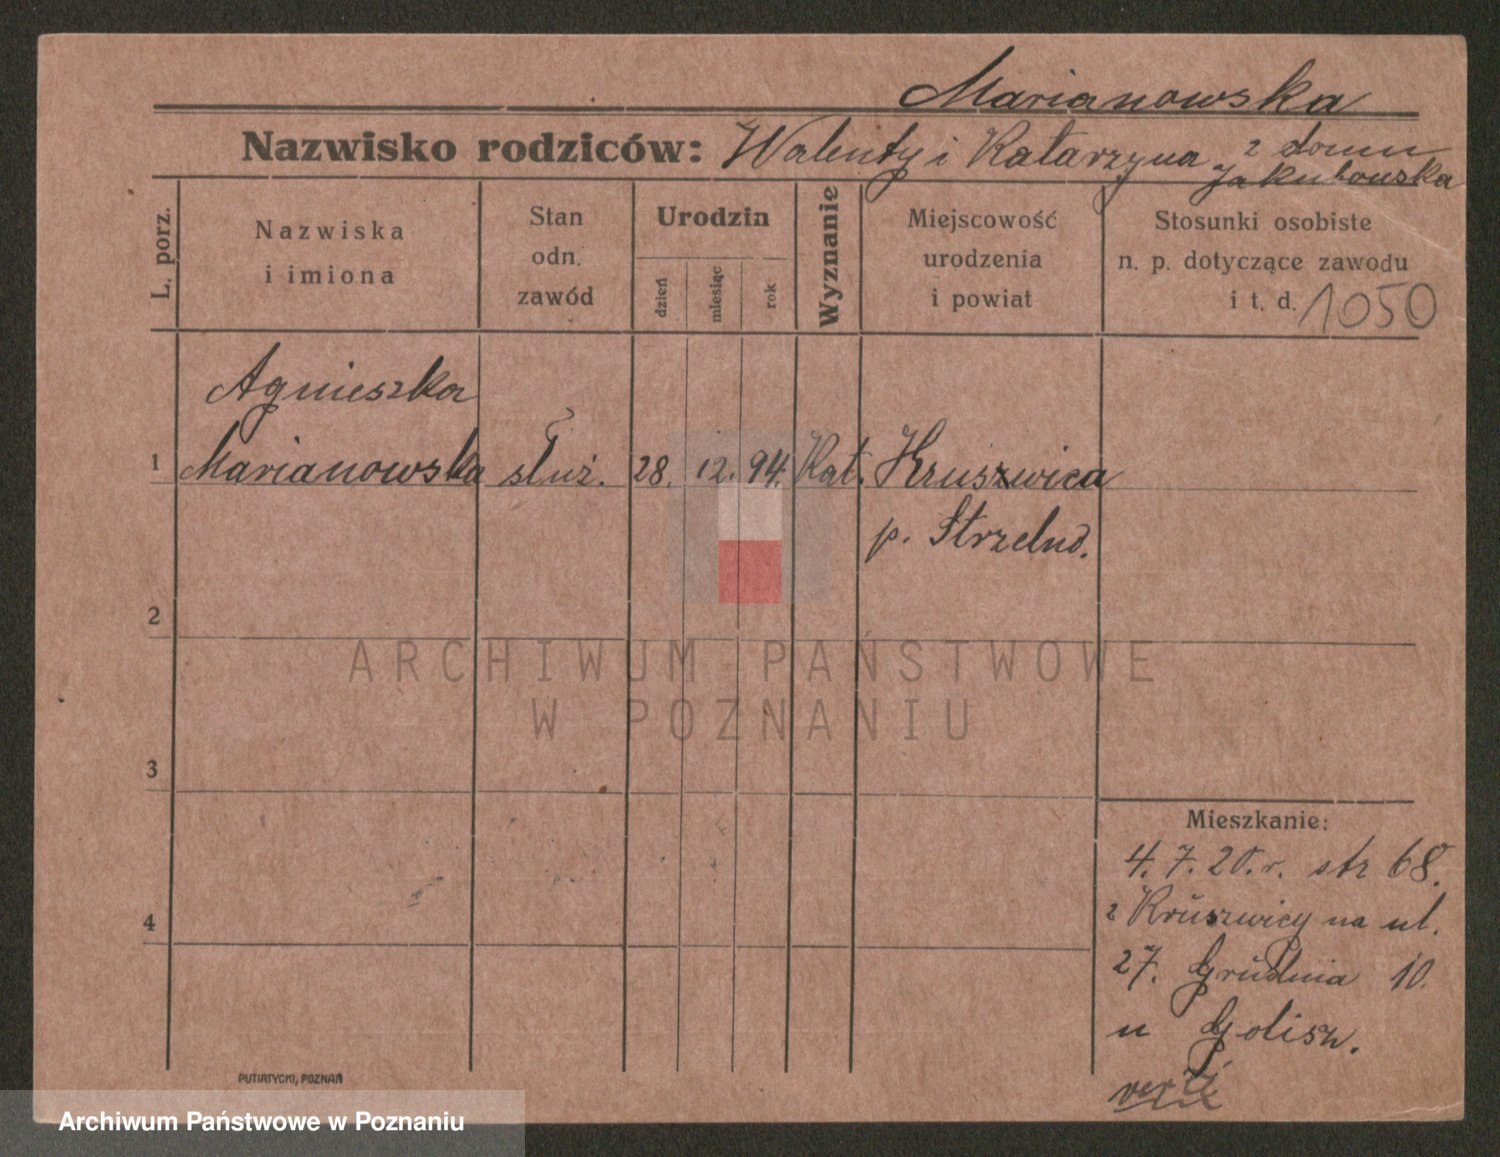 Marianowska
Nazwisko rodziców: Walenty i Katarzyna z domu
Jakubowska
L. porz.
Nazwiska
i imiona
Stan
odn.
zawód
Urodzin
dzień
miesiąc
rok
Wyznanie
Miejscowość
urodzenia
i powiat
Stosunki osobiste
n. p. dotyczące zawodu
i t. d. 1050
Agnieszka
1 Marianowska służ. 28. 12. 94. Kat. Kruszwica
p. Strzelno.
2
ARCHIWUM PAŃSTWOWE
W POZNANIU
3
Mieszkanie:
4. 7. 20. r. str 68.
z Kruszwicy na ul.
4
27. Grudnia 10.
u Golisz.
PUTIATYCKI, POZNAŃ
Archiwum Państwowe w Poznaniu